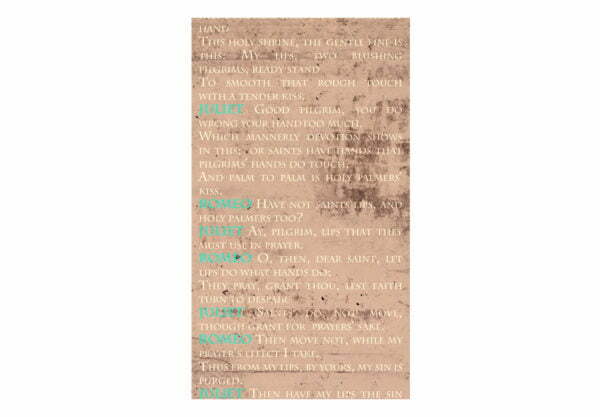 HAND
THIS HOLY SHRINE, THE GENTLE FINE IS
THIS: MY LIPS, TWO BLUSHING
PILGRIMS, READY STAND
TO SMOOTH THAT ROUGH TOUCH
WITH A TENDER KISS.
JULIET GOOD PILGRIM, YOU DO
WRONG YOUR HAND TOO MUCH,
WHICH MANNERLY DEVOTION SHOWS
IN THIS; FOR SAINTS HAVE HANDS THAT
PILGRIMS' HANDS DO TOUCH,
AND PALM TO PALM IS HOLY PALMERS'
KISS.
ROMEO HAVE NOT SAINTS LIPS, AND
HOLY PALMERS TOO?
JULIET AY, PILGRIM, LIPS THAT THEY
MUST USE IN PRAYER.
ROMEO O, THEN, DEAR SAINT, LET
LIPS DO WHAT HANDS DO;
THEY PRAY, GRANT THOU, LEST FAITH
TURN TO DESPAIR.
JULIET SAINTS DO NOT MOVE,
THOUGH GRANT FOR PRAYERS' SAKE.
ROMEO THEN MOVE NOT, WHILE MY
PRAYER'S EFFECT I TAKE.
THUS FROM MY LIPS, BY YOURS, MY SIN IS
PURGED.
JULIET THEN HAVE MY LIPS THE SIN